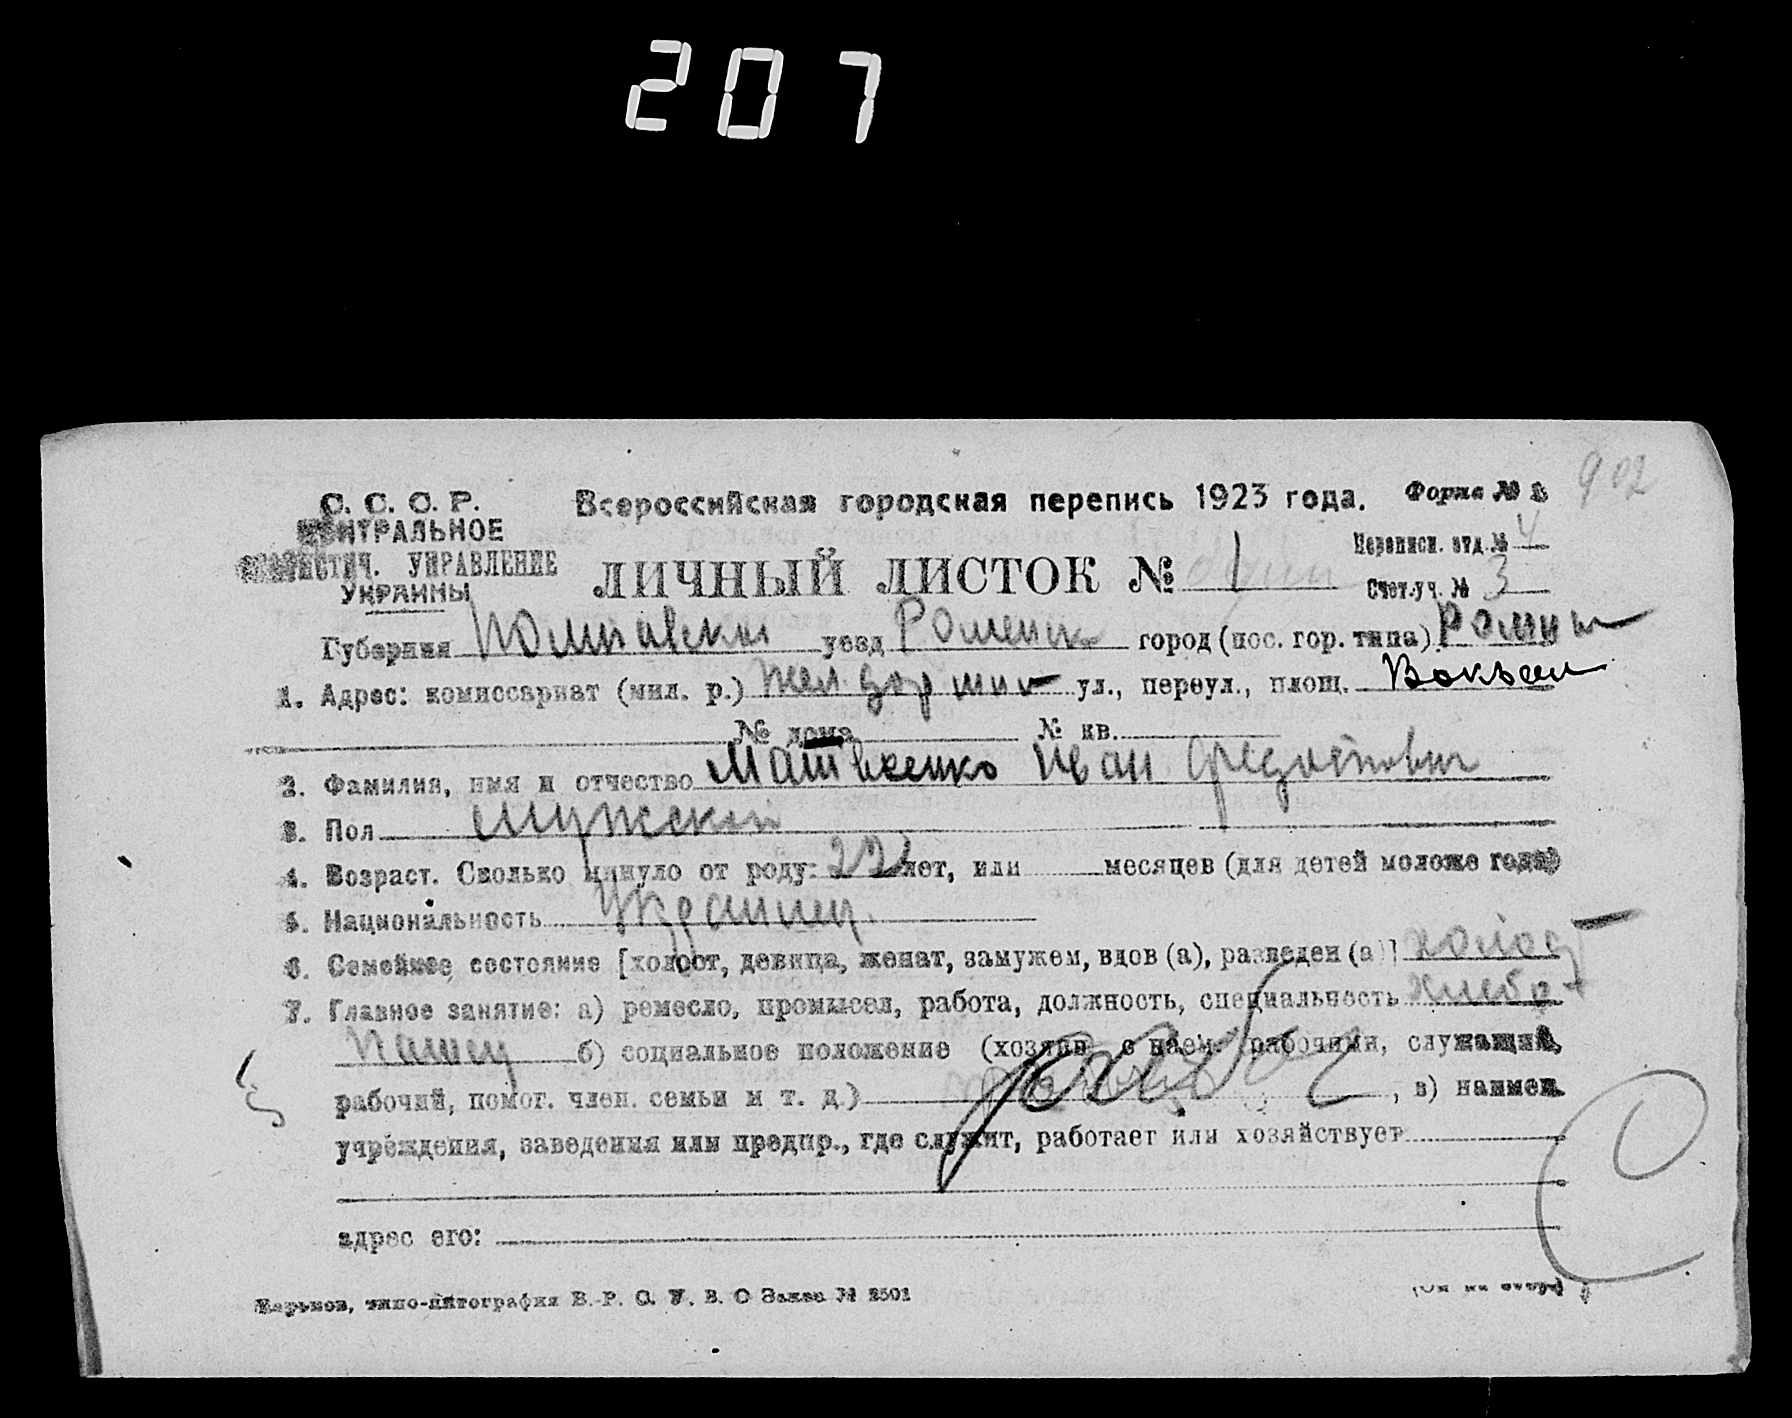 207
902
С. С. С. Р.
ЦЕНТРАЛЬНОЕ
СТАТИСТИЧ. УПРАВЛЕНИЕ
УКРАИНЫ
Всероссийская городская перепись 1923 года.
Форма №
Переписн. отд. № 4
ЛИЧНЫЙ ЛИСТОК № 1
Счет. уч. № 3
Губерния Полтавская уезд Роменск город (пос. гор. типа) Ромны
1. Адрес: комиссариат (мил. р.) Жел. дор ул., переул., площ. Вокзал
№ дома № кв.
2. Фамилия, имя и отчество Матвеенко Иван
3. Пол Мужской
4. Возраст. Сколько минуло от роду: 22 лет, или месяцев (для детей моложе года)
5. Национальность Украинец.
6. Семейное состояние [холост, девица, женат, замужем, вдов (а), разведен (а)] холост
7. Главное занятие: а) ремесло, промысел, работа, должность, специальность хлебо-
пашец б) социальное положение (хозяин с наем. рабочими, служащий,
рабочий, помог. член. семьи и т. д.) , в) наимен.
учреждения, заведения или предпр., где служит, работает или хозяйствует
адрес его:
Харьков, типо-литография В. Р. С. У. В. О Заказ № 2501